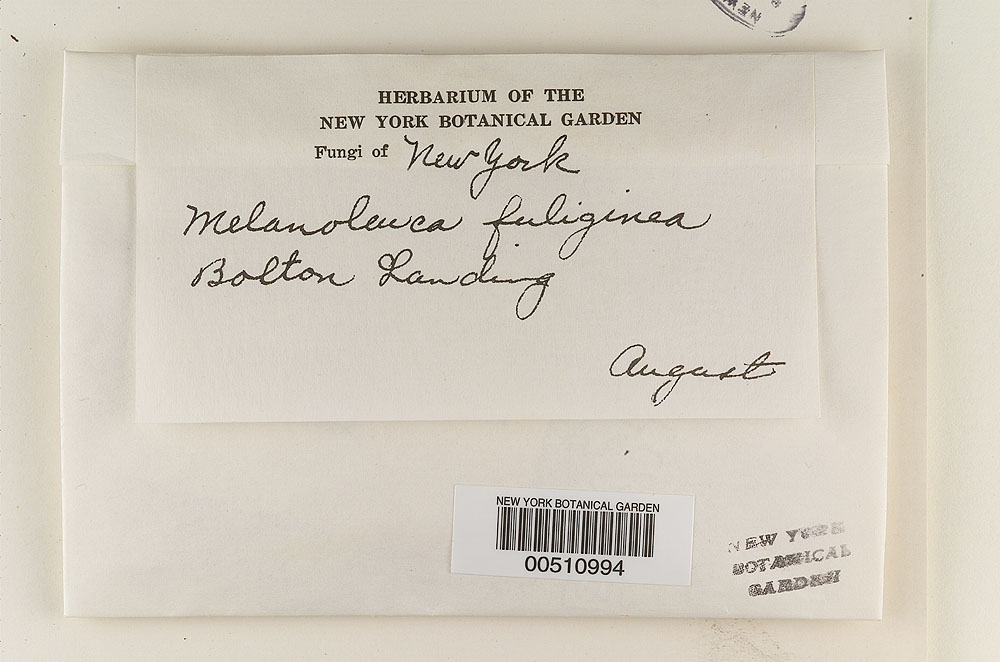 NEW
HERBARIUM OF THE
NEW YORK BOTANICAL GARDEN
Fungi of New York
Melanoleuca fuliginea
Bolton Landing
August
NEW YORK BOTANICAL GARDEN
00510994
NEW YORK
BOTANICAL
GARDEN